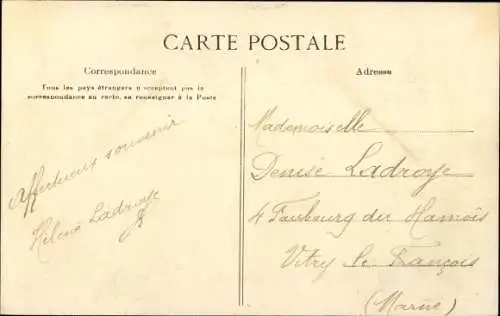 CARTE POSTALE
Correspondance
Tous les pays étrangers n'acceptent pas la
correspondance au recto, se renseigner à la Poste
Affectueux souvenir
Hélène Ladroye
Adresse
Mademoiselle
Denise Ladroye
4 Faubourg du Hamois
Vitry le François
(Marne)